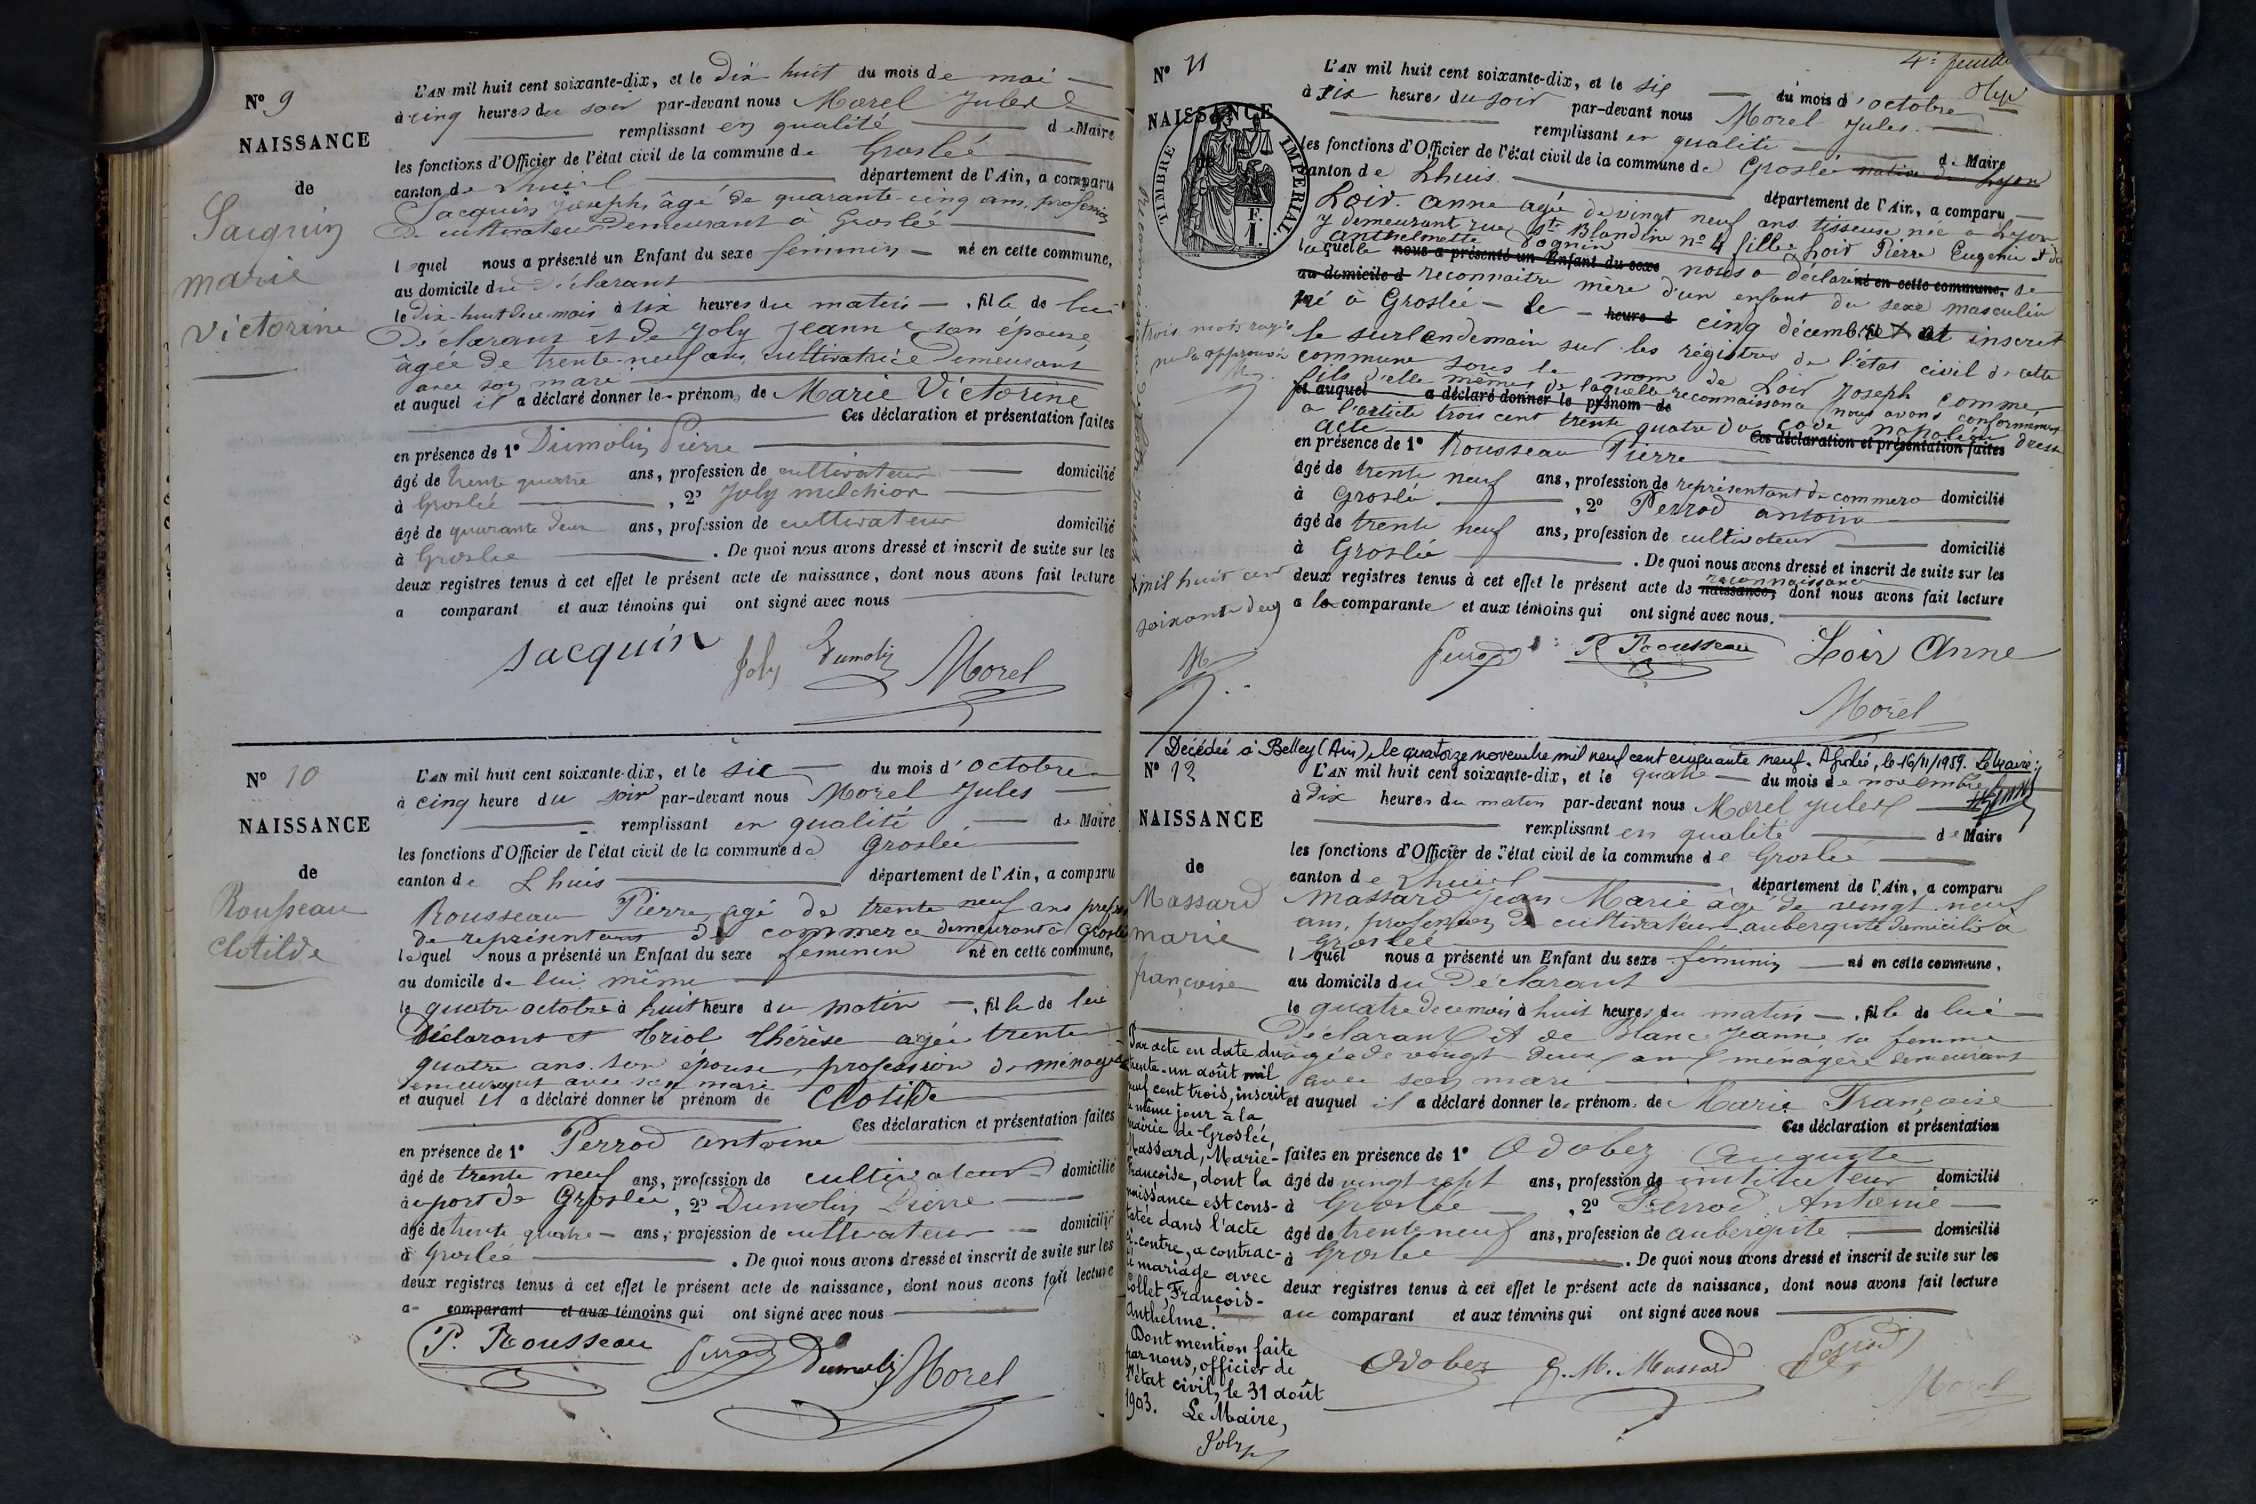 N° 9
NAISSANCE
de
Jacquin
marie
Victorine
L'AN mil huit cent soixante-dix, et le dix huit du mois de mai
à cinq heures du soir par-devant nous Morel Jules
remplissant en qualité de Maire
les fonctions d'Officier de l'état civil de la commune de Groslée
canton de Lhuis département de l'Ain, a comparu
Jacquin Joseph, âgé de quarante-cinq ans, profession
de cultivateur demeurant à Groslée
lequel nous a présenté un Enfant du sexe féminin né en cette commune,
au domicile du déclarant
le dix-huit de ce mois à six heures du matin, fille de lui
Déclarant et de Joly Jeanne son épouse
âgée de trente-neuf ans, cultivatrice Demeurant
avec son mari
et auquel il a déclaré donner les prénoms de Marie Victorine
Ces déclaration et présentation faites
en présence de 1° Dumolin Pierre
âgé de trente quatre ans, profession de cultivateur domicilié
à Groslée, 2° Joly melchior
âgé de quarante deux ans, profession de cultivateur domicilié
à Groslée. De quoi nous avons dressé et inscrit de suite sur les
deux registres tenus à cet effet le présent acte de naissance, dont nous avons fait lecture
a comparant et aux témoins qui ont signé avec nous
Jacquin Joly Dumolin Morel
N° 10
NAISSANCE
de
Rousseau
Clotilde
L'AN mil huit cent soixante-dix, et le six du mois d'octobre
à cinq heure du soir par-devant nous Morel Jules
remplissant en qualité de Maire
les fonctions d'Officier de l'état civil de la commune de Groslée
canton de Lhuis département de l'Ain, a comparu
Rousseau Pierre, agé de trente neuf ans profession
de représentant de commerce demeurant à Groslée
lequel nous a présenté un Enfant du sexe feminin né en cette commune,
au domicile de lui même
le quatre octobre à huit heure du matin, fille de lui
Déclarant et Triol Thérèse agée trente
quatre ans son épouse, profession de ménagère
demeurant avec son mari
et auquel il a déclaré donner le prénom de Clotilde
Ces déclaration et présentation faites
en présence de 1° Perrod Antoine
âgé de trente neuf ans, profession de cultivateur domicilié
à port de Groslée, 2° Dumolin Pierre
âgé de trente quatre ans, profession de cultivateur domicilié
à Groslée. De quoi nous avons dressé et inscrit de suite sur les
deux registres tenus à cet effet le présent acte de naissance, dont nous avons fait lecture
a comparant et aux témoins qui ont signé avec nous
P. Rousseau Perrod Dumolin Morel
4e feuillet
N° 11
NAISSANCE
TIMBRE IMPERIAL.
F. 1.
L'AN mil huit cent soixante-dix, et le six du mois d'octobre
à six heures du soir par-devant nous Morel Jules
remplissant en qualité de Maire
les fonctions d'Officier de l'état civil de la commune de Groslée native de Lyon
canton de Lhuis département de l'Ain, a comparu
Loir anne agée de vingt neuf ans tisseuse née à Lyon
y demeurant rue Ste Blandine n° 4 fille Loir Pierre Eugenie et de
anthelmette Dognin
laquelle nous a présenté un Enfant du sexe nous a déclaré né en cette commune, se
au domicile d reconnaitre mère d'un enfant du sexe masculin
né à Groslée le heure d cinq décembre et inscrit
le surlendemain sur les régistres de l'état civil de cette
commune sous le nom de Loir Joseph comme
fils d'elle même, de laquelle reconnaissance nous avons conformément
et auquel a déclaré donner le prénom de
a l'article trois cent trente quatre du code napoléon dressé
acte Ces déclaration et présentation faites
en présence de 1° Rousseau Pierre
âgé de trente neuf ans, profession de représentant de commerce domicilié
à Groslée, 2° Perrod antoine
âgé de trente neuf ans, profession de cultivateur domicilié
à Groslée. De quoi nous avons dressé et inscrit de suite sur les
reconnaissance
deux registres tenus à cet effet le présent acte de naissance, dont nous avons fait lecture
a la comparante et aux témoins qui ont signé avec nous.
trois mots rayés
nuls approuvés
mil huit cent
soixante deux
Perrod P. Rousseau Loir Anne
Morel
Décédée à Belley (Ain), le quatorze novembre mil neuf cent cinquante neuf. Groslée, le 16/11/1959. Le Maire:
N° 12
NAISSANCE
de
Massard
marie
françoise
L'AN mil huit cent soixante-dix, et le quatre du mois de novembre
à dix heures du matin par-devant nous Morel Jules
remplissant en qualité de Maire
les fonctions d'Officier de l'état civil de la commune de Groslée
canton de Lhuis département de l'Ain, a comparu
Massard Jean Marie âgé de vingt neuf
ans, profession de cultivateur aubergiste domicilié à
Groslée
lequel nous a présenté un Enfant du sexe féminin né en cette commune,
au domicile du Déclarant
le quatre de ce mois à huit heures du matin, fille de lui
Déclarant et de Blanc Jeanne sa femme
âgée de vingt deux ans ménagère demeurant
avec son mari
et auquel il a déclaré donner les prénoms de Marie Françoise
Ces déclaration et présentation
faites en présence de 1° Odobez Auguste
âgé de vingt sept ans, profession de instituteur domicilié
à Groslée, 2° Perrod Antoine
âgé de trente neuf ans, profession de aubergiste domicilié
à Groslée. De quoi nous avons dressé et inscrit de suite sur les
deux registres tenus à cet effet le présent acte de naissance, dont nous avons fait lecture
au comparant et aux témoins qui ont signé avec nous
Odobez J. M. Massard Perrod
Morel
Par acte en date du
trente-un août mil
neuf cent trois, inscrit
le même jour à la
mairie de Groslée,
Massard, Marie-
Françoise, dont la
naissance est cons-
tatée dans l'acte
ci-contre, a contrac-
té mariage avec
Collet, François-
Anthelme.
Dont mention faite
par nous, officier de
l'état civil, le 31 août
1903. Le Maire,
Joly